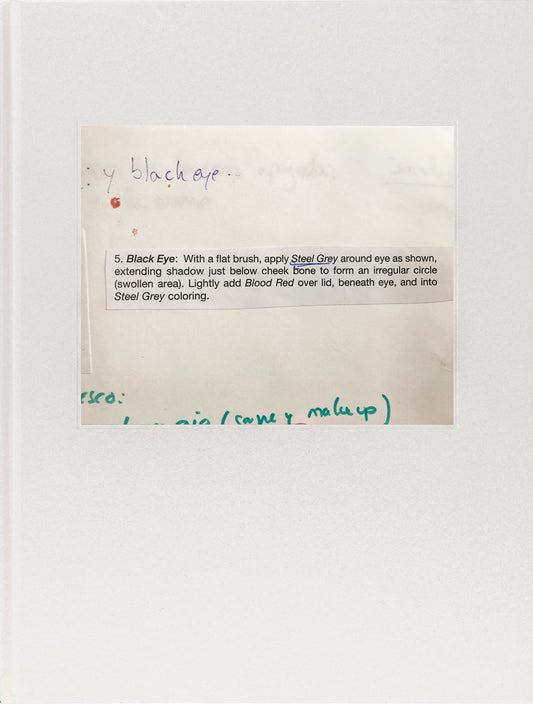 : y black eye.
5. Black Eye: With a flat brush, apply Steel Grey around eye as shown,
extending shadow just below cheek bone to form an irregular circle
(swollen area). Lightly add Blood Red over lid, beneath eye, and into
Steel Grey coloring.
esco:
(carne y makeup)